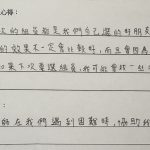 心得：
的組員都是我們自己選的好朋友
的效果不一定會比較好，而且會因為
如果下次要選組員，我可能會找一些
：
師在我們遇到困難時，協助我